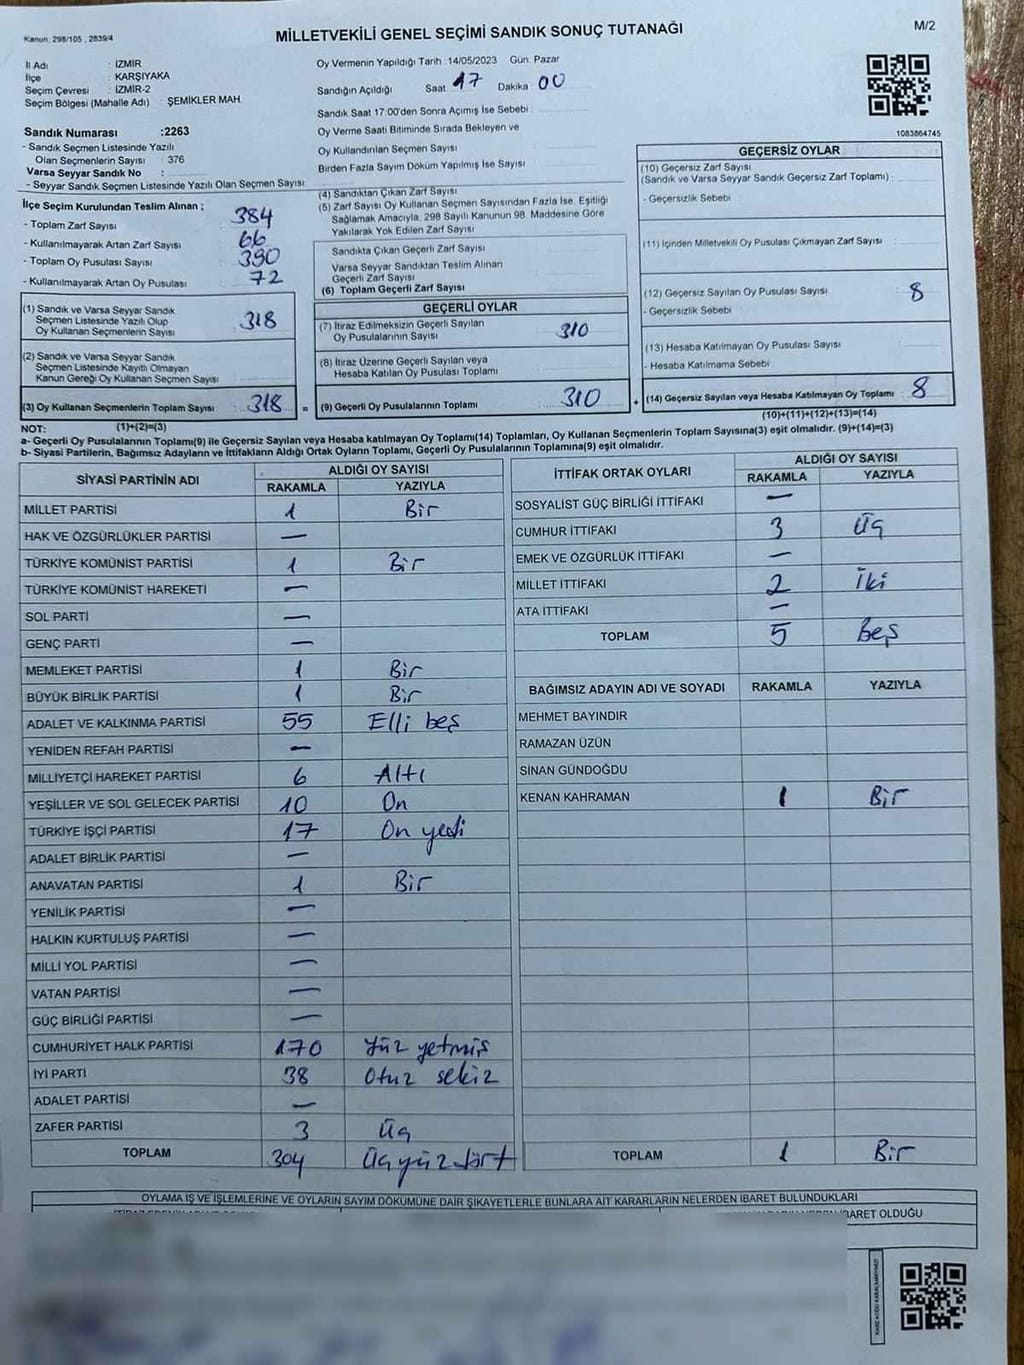 Kanun: 298/105 , 2839/4
MİLLETVEKİLİ GENEL SEÇİMİ SANDIK SONUÇ TUTANAĞI
M/2
İl Adı : İZMİR
İlçe : KARŞIYAKA
Seçim Çevresi : İZMİR-2
Seçim Bölgesi (Mahalle Adı) : ŞEMİKLER MAH.
Sandık Numarası :2263
- Sandık Seçmen Listesinde Yazılı
Olan Seçmenlerin Sayısı : 376
Varsa Seyyar Sandık No :
- Seyyar Sandık Seçmen Listesinde Yazılı Olan Seçmen Sayısı
İlçe Seçim Kurulundan Teslim Alınan ;
- Toplam Zarf Sayısı : 384
- Kullanılmayarak Artan Zarf Sayısı : 66
- Toplam Oy Pusulası Sayısı : 390
- Kullanılmayarak Artan Oy Pusulası : 72
(1) Sandık ve Varsa Seyyar Sandık
Seçmen Listesinde Yazılı Olup
Oy Kullanan Seçmenlerin Sayısı : 318
(2) Sandık ve Varsa Seyyar Sandık
Seçmen Listesinde Kayıtlı Olmayan
Kanun Gereği Oy Kullanan Seçmen Sayısı
(3) Oy Kullanan Seçmenlerin Toplam Sayısı : 318 =
(1)+(2)=(3)
Oy Vermenin Yapıldığı Tarih :14/05/2023 Gün: Pazar
Sandığın Açıldığı Saat 17 Dakika 00
Sandık Saat 17:00'den Sonra Açımış İse Sebebi
Oy Verme Saati Bitiminde Sırada Bekleyen ve
Oy Kullandırılan Seçmen Sayısı
Birden Fazla Sayım Döküm Yapılmış İse Sayısı
(4) Sandıktan Çıkan Zarf Sayısı
(5) Zarf Sayısı Oy Kullanan Seçmen Sayısından Fazla İse, Eşitliği
Sağlamak Amacıyla, 298 Sayılı Kanunun 98. Maddesine Göre
Yakılarak Yok Edilen Zarf Sayısı
Sandıkta Çıkan Geçerli Zarf Sayısı
Varsa Seyyar Sandıktan Teslim Alınan
Geçerli Zarf Sayısı
(6) Toplam Geçerli Zarf Sayısı
GEÇERLİ OYLAR
(7) İtiraz Edilmeksizin Geçerli Sayılan
Oy Pusulalarının Sayısı 310
(8) İtiraz Üzerine Geçerli Sayılan veya
Hesaba Katılan Oy Pusulası Toplamı
(9) Geçerli Oy Pusulalarının Toplamı 310 +
1083864745
GEÇERSİZ OYLAR
(10) Geçersiz Zarf Sayısı
(Sandık ve Varsa Seyyar Sandık Geçersiz Zarf Toplamı) :
- Geçersizlik Sebebi
(11) İçinden Milletvekili Oy Pusulası Çıkmayan Zarf Sayısı
(12) Geçersiz Sayılan Oy Pusulası Sayısı 8
- Geçersizlik Sebebi
(13) Hesaba Katılmayan Oy Pusulası Sayısı
- Hesaba Katılmama Sebebi
(14) Geçersiz Sayılan veya Hesaba Katılmayan Oy Toplamı : 8
(10)+(11)+(12)+(13)=(14)
NOT:
a- Geçerli Oy Pusulalarının Toplamı(9) ile Geçersiz Sayılan veya Hesaba katılmayan Oy Toplamı(14) Toplamları, Oy Kullanan Seçmenlerin Toplam Sayısına(3) eşit olmalıdır. (9)+(14)=(3)
b- Siyasi Partilerin, Bağımsız Adayların ve İttifakların Aldığı Ortak Oyların Toplamı, Geçerli Oy Pusulalarının Toplamına(9) eşit olmalıdır.
SİYASİ PARTİNİN ADI ALDIĞI OY SAYISI
RAKAMLA YAZIYLA
MİLLET PARTİSİ 1 Bir
HAK VE ÖZGÜRLÜKLER PARTİSİ —
TÜRKİYE KOMÜNİST PARTİSİ 1 Bir
TÜRKİYE KOMÜNİST HAREKETİ —
SOL PARTİ —
GENÇ PARTİ —
MEMLEKET PARTİSİ 1 Bir
BÜYÜK BİRLİK PARTİSİ 1 Bir
ADALET VE KALKINMA PARTİSİ 55 Elli beş
YENİDEN REFAH PARTİSİ —
MİLLİYETÇİ HAREKET PARTİSİ 6 Altı
YEŞİLLER VE SOL GELECEK PARTİSİ 10 On
TÜRKİYE İŞÇİ PARTİSİ 17 On yedi
ADALET BİRLİK PARTİSİ —
ANAVATAN PARTİSİ 1 Bir
YENİLİK PARTİSİ —
HALKIN KURTULUŞ PARTİSİ —
MİLLİ YOL PARTİSİ —
VATAN PARTİSİ —
GÜÇ BİRLİĞİ PARTİSİ —
CUMHURİYET HALK PARTİSİ 170 Yüz yetmiş
İYİ PARTİ 38 Otuz sekiz
ADALET PARTİSİ —
ZAFER PARTİSİ 3 Üç
TOPLAM 304 Üçyüz dört
İTTİFAK ORTAK OYLARI ALDIĞI OY SAYISI
RAKAMLA YAZIYLA
SOSYALİST GÜÇ BİRLİĞİ İTTİFAKI —
CUMHUR İTTİFAKI 3 Üç
EMEK VE ÖZGÜRLÜK İTTİFAKI —
MİLLET İTTİFAKI 2 İki
ATA İTTİFAKI —
TOPLAM 5 Beş
BAĞIMSIZ ADAYIN ADI VE SOYADI RAKAMLA YAZIYLA
MEHMET BAYINDIR
RAMAZAN ÜZÜN
SİNAN GÜNDOĞDU
KENAN KAHRAMAN 1 Bir
TOPLAM 1 Bir
OYLAMA İŞ VE İŞLEMLERİNE VE OYLARIN SAYIM DÖKÜMÜNE DAİR ŞİKAYETLERLE BUNLARA AİT KARARLARIN NELERDEN İBARET BULUNDUKLARI
İBARET OLDUĞU